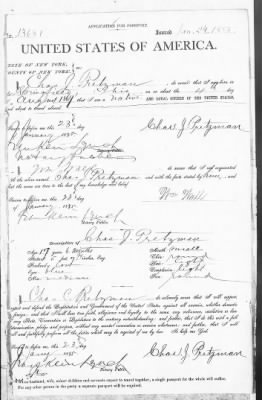 APPLICATION FOR PASSPORT.
No. 13681 Issued Jan. 24 1885.
UNITED STATES OF AMERICA.
STATE OF NEW YORK,
COUNTY OF NEW YORK,
I Chas J. Pretzman do swear that I was born in
Ohio on the day
of August 1867 that I am a native AND LOYAL CITIZEN OF THE UNITED STATES,
and about to travel abroad
Sworn to before me this 23d day
of January 1885
Chas J. Pretzman
Notary Public
I, Wm Wall
Chas Pretzman and that the facts stated by him and
are true to the best of my knowledge and belief
Sworn to before me this 23d day
of January 1885
Wm Wall
Notary Public
Description of Chas J. Pretzman
Age 17 years 6 months Mouth small
Stature 5 ft Chin round
Forehead Hair light
Eyes blue Complexion light
Nose medium Face round
I, Chas J. Pretzman do solemnly swear that I will support, protect
and defend the Constitution and Government of the United States against all enemies, whether domestic
or foreign; and that I will bear true faith, allegiance and loyalty to the same, any ordinance, resolution or law
of any State, Convention or Legislature to the contrary notwithstanding; and further, that I do this with a full
determination, pledge and purpose, without any mental reservation or evasion whatsoever; and further, that I will
well and faithfully perform all the duties which may be required of me by law. So help me God
Sworn to before me this 23d day
of January 1885
Chas J. Pretzman
When husband, wife, minor children and servants expect to travel together, a single passport for the whole will suffice.
For any other person in the party a separate passport will be required.